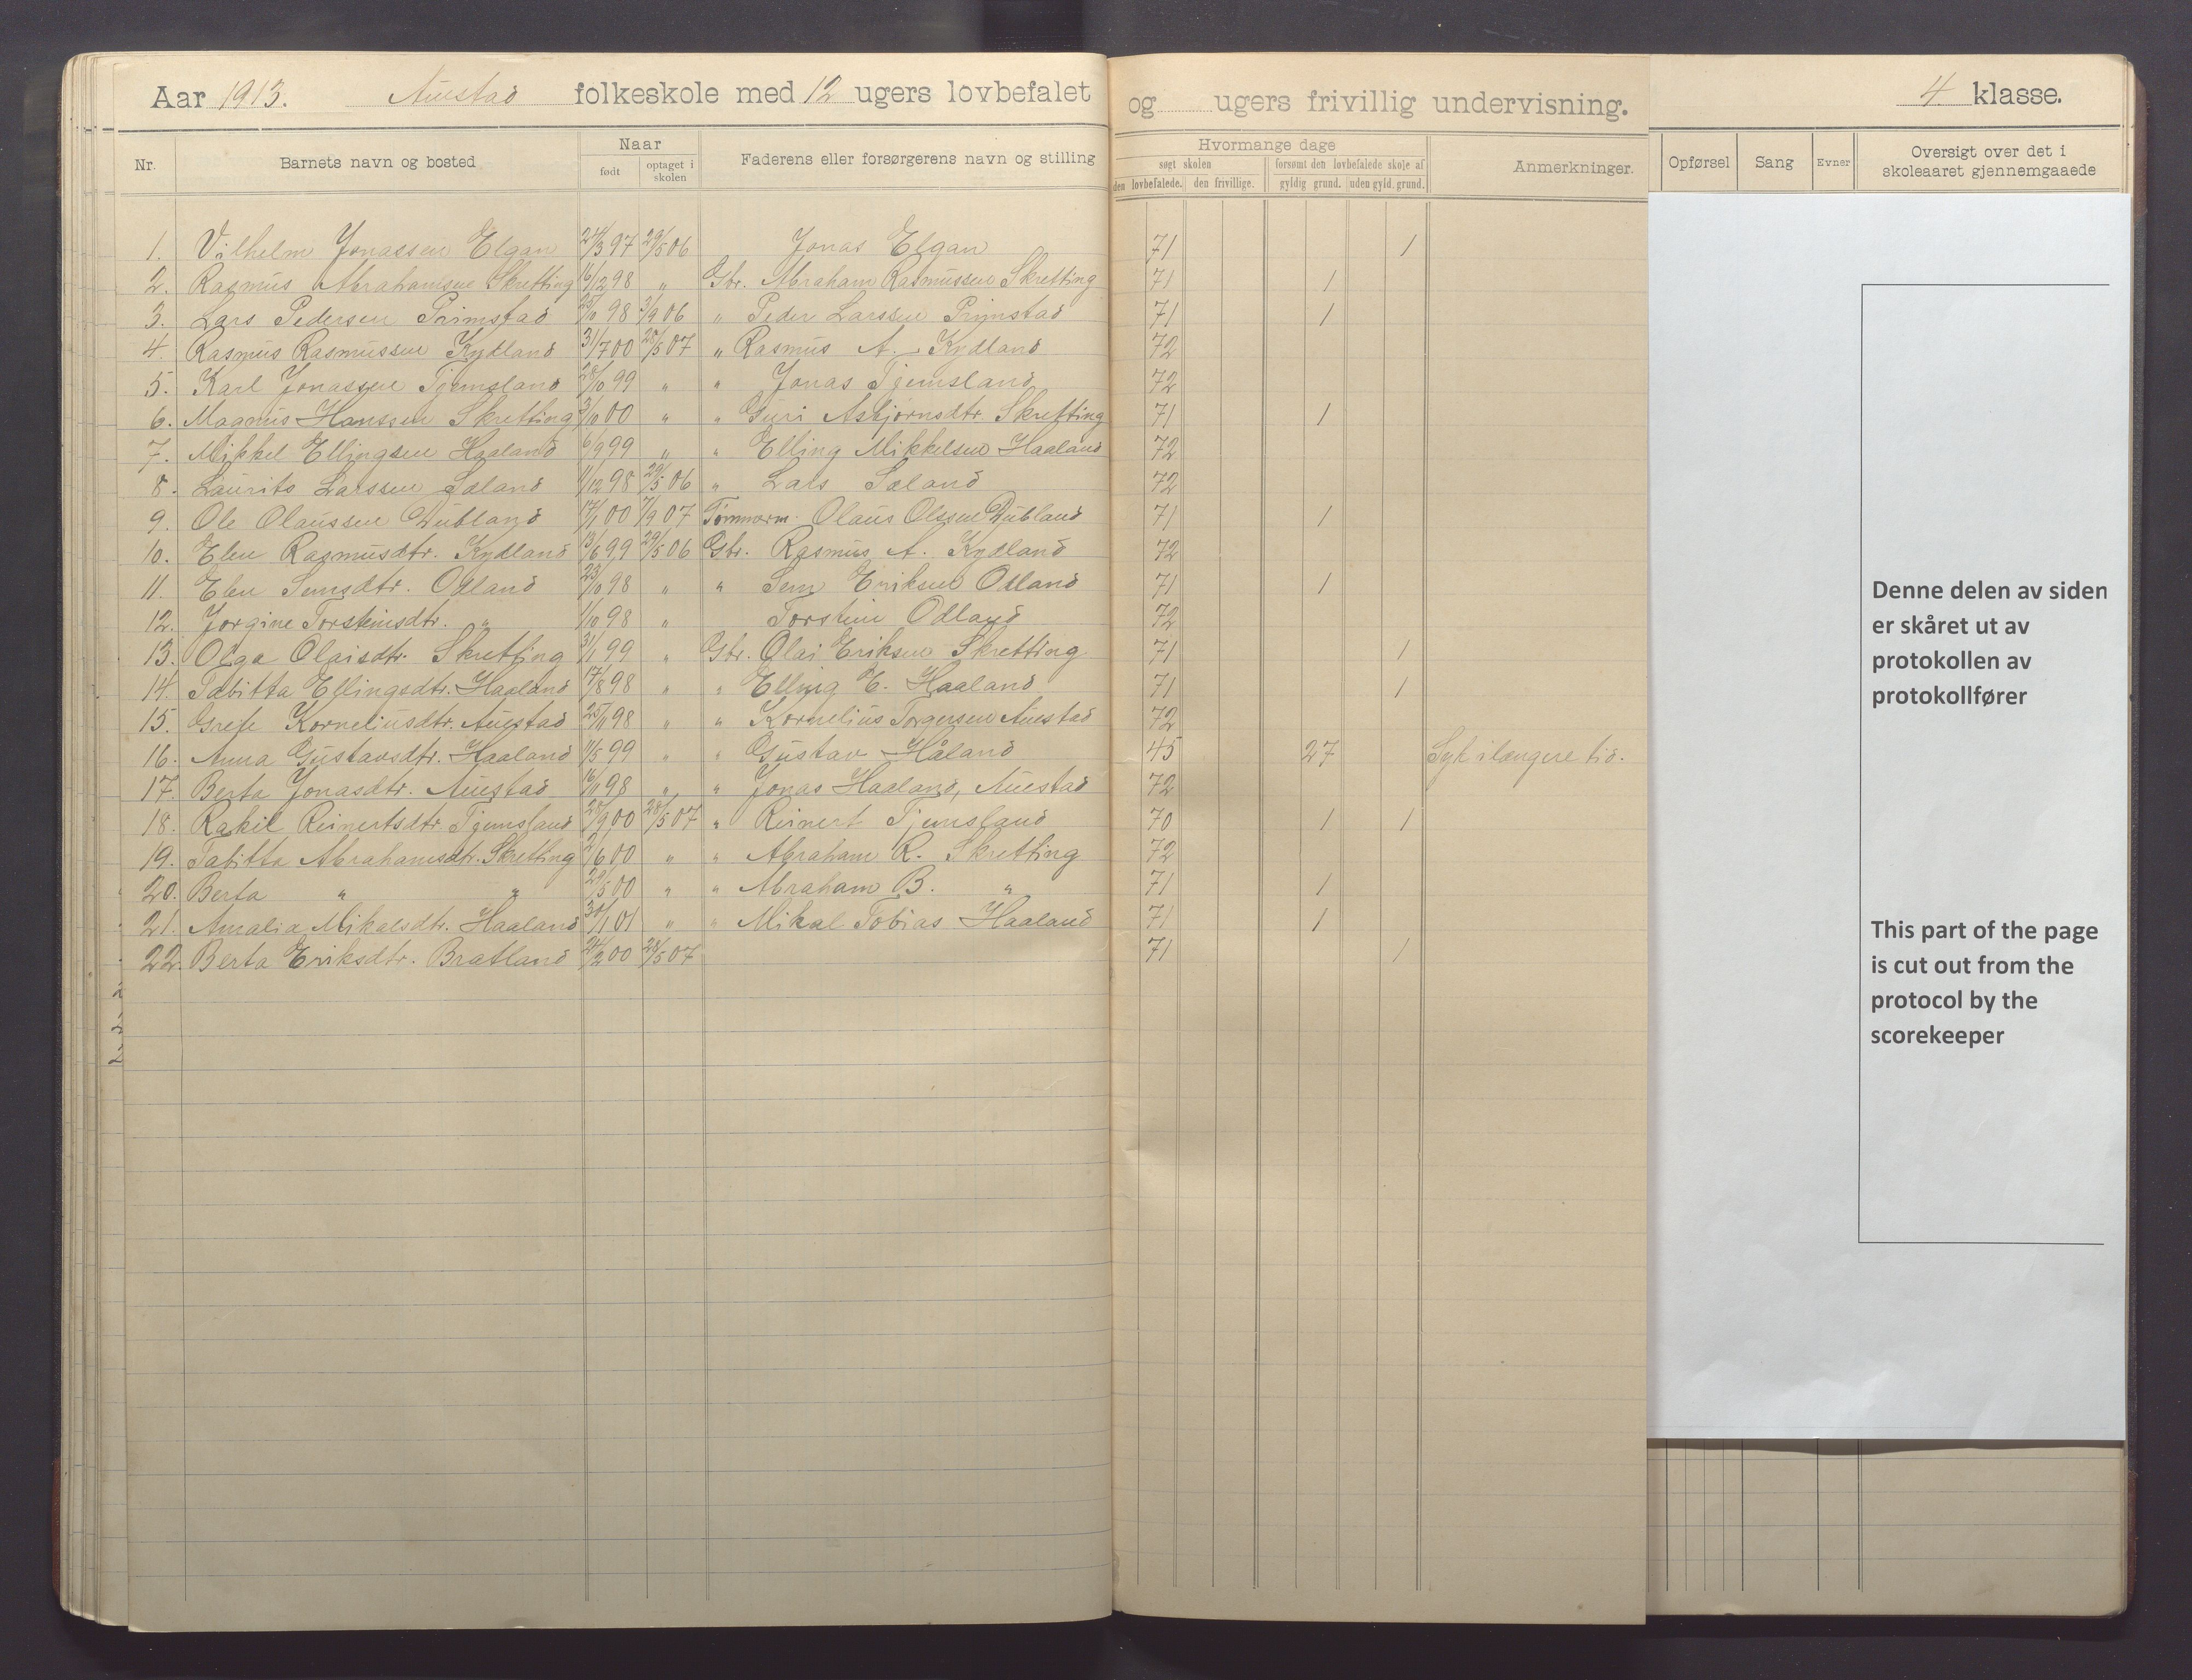 Aar 1913. Auestad folkeskole med 12 ugers lovbefalet og ugers frivillig undervisning. 4 klasse.
Nr. Barnets navn og bosted Naar født optaget i skolen Faderens eller forsørgerens navn og stilling Hvormange dage søgt skolen den lovbefalede. den frivillige. forsømt den lovbefalede skole af gyldig grund. uden gyld. grund. Anmerkninger. Opførsel Sang Evner Oversigt over det i skoleaaret gjennemgaaede
1. Vilhelm Jonassen Elgan 24/3 97 29/5 06 Jonas Elgan 71 1
2. Rasmus Abrahamsen Skretting 16/12 98 " Gbr. Abraham Rasmussen Skretting 71 1
3. Lars Pedersen Primstad 98 3/9 06 " Peder Larssen Primstad 71 1
4. Rasmus Rasmussen Kydland 31/7 00 28/5 07 " Rasmus A. Kydland 72
5. Karl Jonassen Tjemsland 28/10 99 " " Jonas Tjemsland 72
6. Magnus Hanssen Skretting 3/10 00 " " Guri Asbjørnsdtr Skretting 71 1
7. Mikkel Ellingsen Haaland 6/9 99 " " Elling Mikkelsen Haaland 72
8. Laurits Larssen Sæland 11/12 98 29/5 06 " Lars Sæland 72
9. Ole Olaussen Dubland 17/1 00 7/9 07 Tømmerm. Olaus Olssen Dubland 71 1
10. Elen Rasmusdtr. Kydland 13/6 99 29/5 06 Gbr. Rasmus A. Kydland 72
11. Elen Semsdtr. Odland 23/10 98 " " Sem Eriksen Odland 71 1
12. Jorgine Torsteinsdtr. " 1/10 98 " Torstein Odland 72
13. Olga Olaisdtr. Skretting 31/1 99 " Gbr. Olai Eriksen Skretting 71 1
14. Tabitta Ellingsdtr. Haaland 17/8 98 " " Elling E. Haaland 71 1
15. Grete Korneliusdtr. Auestad 25/11 98 " " Kornelius Torgersen Auestad 72
16. Anna Gustavsdtr. Haaland 11/5 99 " " Gustav Håland 45 27 Syk i længere tid.
17. Berta Jonasdtr. Auestad 16/11 98 " " Jonas Haaland, Auestad 72
18. Rakil Reinertsdtr. Tjemsland 28/9 00 28/5 07 " Reinert Tjemsland 70 1 1
19. Tabitta Abrahamsdtr. Skretting 2/6 00 " " Abraham R. Skretting 72
20. Berta " " 29/5 00 " " Abraham B. " 71 1
21. Amalia Mikalsdtr. Haaland 30/1 01 " " Mikal Tobias Haaland 71 1
22. Berta Eriksdtr. Bratland 24/2 00 28/5 07 71 1
Denne delen av siden
er skåret ut av
protokollen av
protokollfører
This part of the page
is cut out from the
protocol by the
scorekeeper